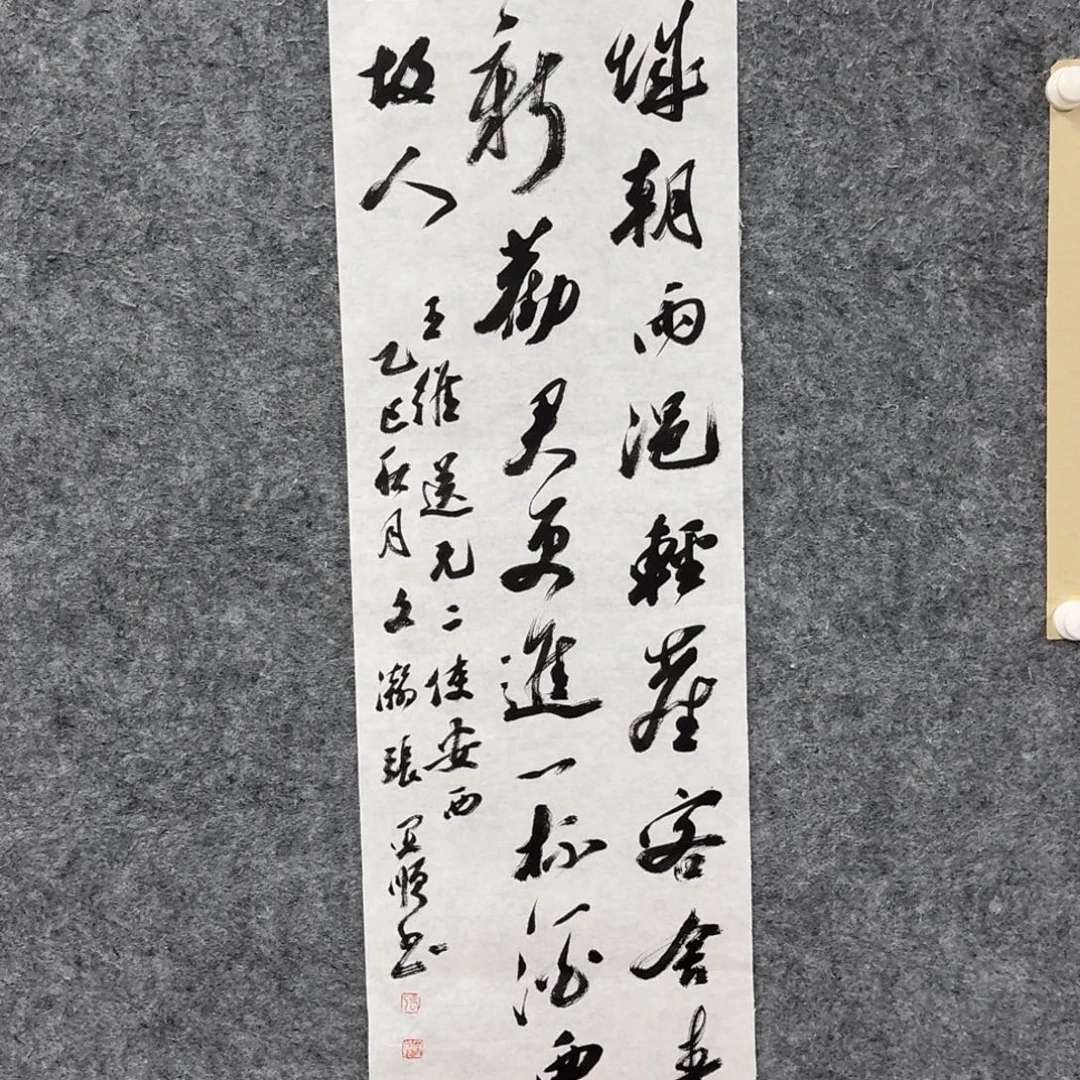 城朝雨浥輕塵客舍青
新勸君更進一杯酒西
故人
王維送元二使安西
乙巳秋月文瀚張順書